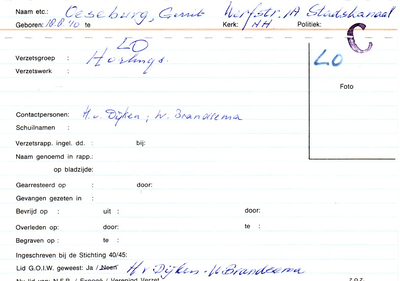 Naam etc.: Oeseburg, Gerrit Werfstr. 1A Stadskanaal
Geboren: 18.8.'10 te Kerk: NH Politiek:
C
LO
Verzetsgroep : Horlings.
LO
Verzetswerk :
Foto
Contactpersonen: H. v. Dijken; W. Brandsema
Schuilnamen :
Verzetsrapp. ingel. dd. : bij:
Naam genoemd in rapp.:
op bladzijde:
Gearresteerd op : door:
Gevangen gezeten in :
Bevrijd op : uit : door:
Overleden op: door: te :
Begraven op : te :
Ingeschreven bij de Stichting 40/45:
Lid G.O.I.W. geweest: Ja / Neen H. v. Dijken - W. Brandsema